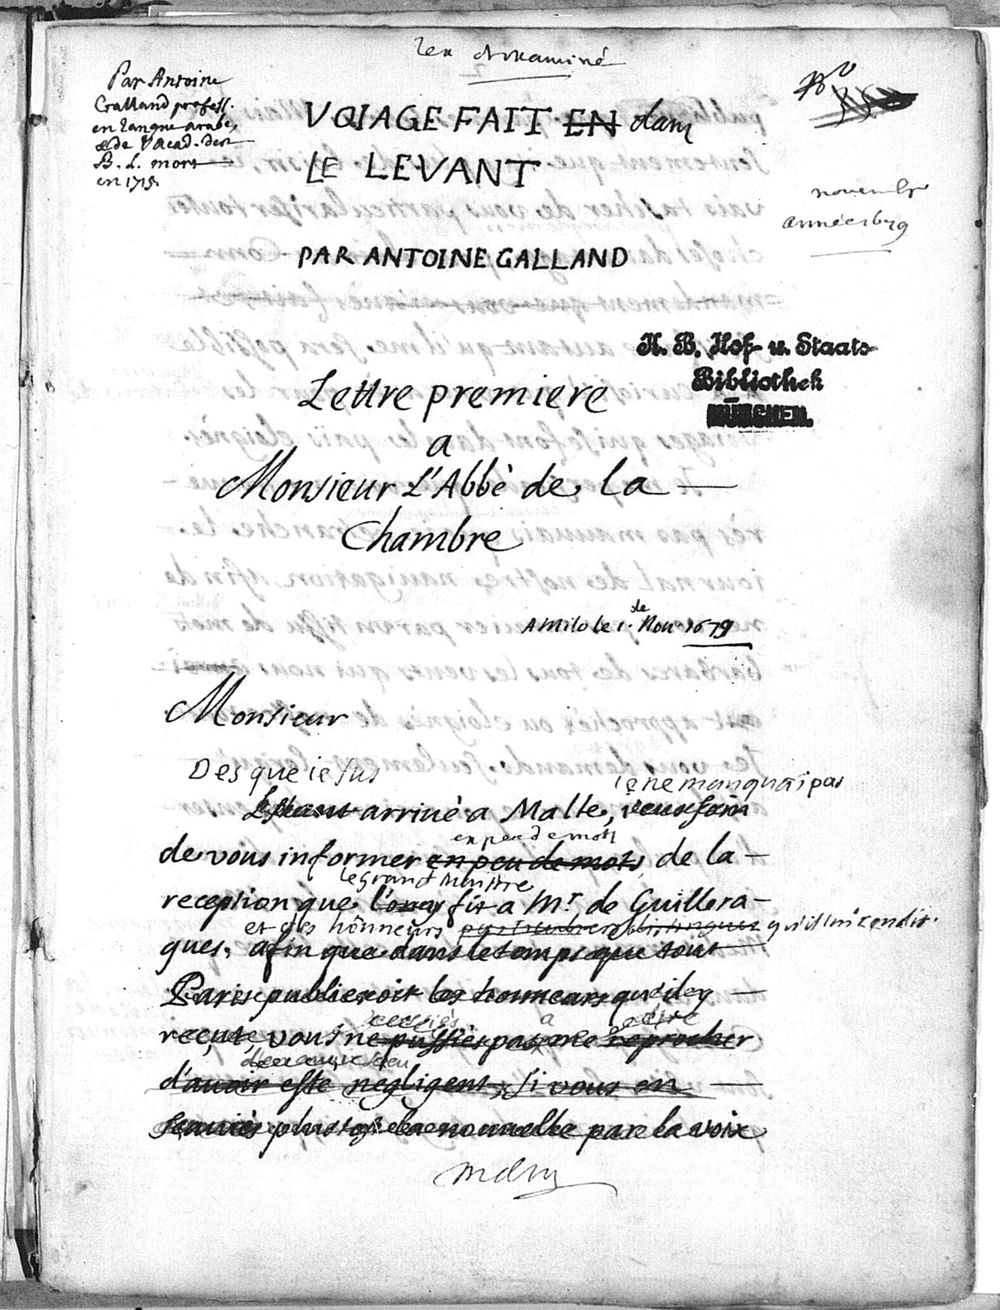 Par Antoine
Galland profess.
en langue arabe,
& de l'Acad. des
B. L. mort
en 1715.
VOIAGE FAIT EN dans
LE LEVANT
novembre
année 1679
PAR ANTOINE GALLAND
K. B. Hof- u. Staats-
Bibliothek
MÜNCHEN.
Lettre premiere
a
Monsieur L'Abbé de la
Chambre
A Milo le 1. de Nov. 1679
Monsieur
Des que ie fus
ie ne manquai pas
Estant arrivé a Malte,
en peu de mots
de vous informer en peu de mots de la
le grand Maitre
reception que l'on y fit a Mr. de Guillera-
et des honneurs qu'il lui rendit.
gues, afin que dans le temps que tout
Paris publieroit les honneurs qu'il y
receut, vous ne pussiés pas me reprocher
d'avoir esté negligent, si vous en
plustost la nouvelle par la voix